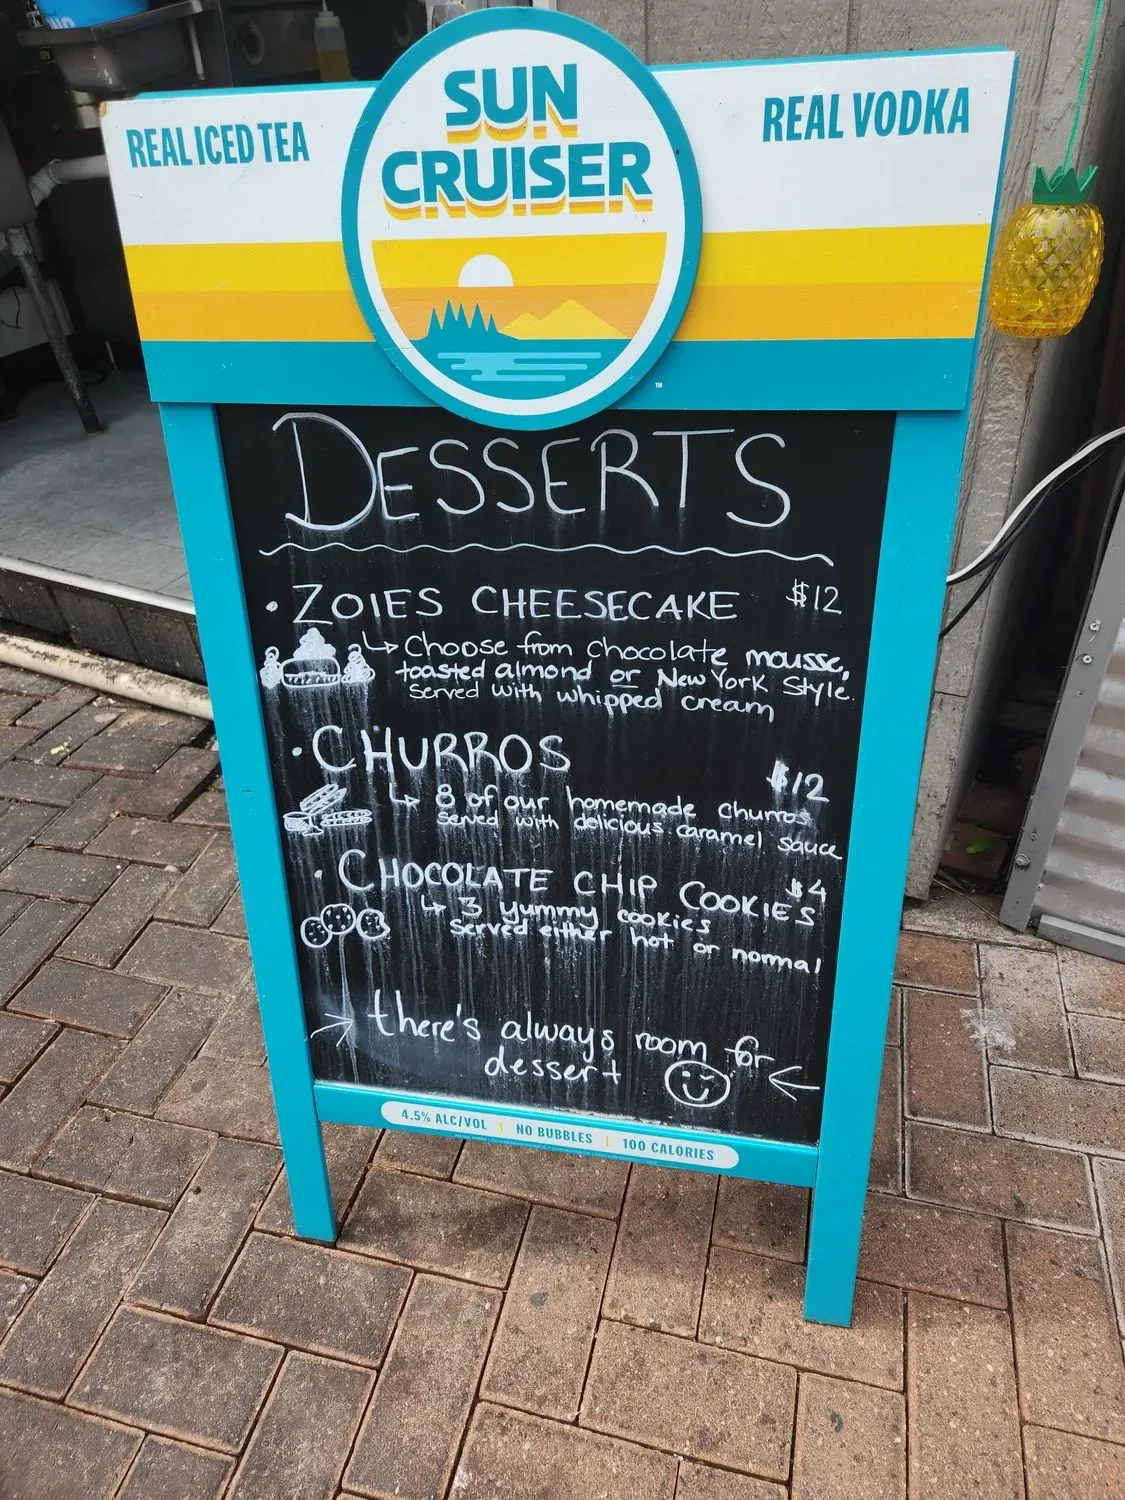 REAL ICED TEA
SUN
CRUISER
REAL VODKA
™
DESSERTS
• ZOIES CHEESECAKE $12
↳ Choose from chocolate mousse,
toasted almond or New York Style.
served with whipped cream
• CHURROS $12
↳ 8 of our homemade churros
served with delicious caramel sauce
• CHOCOLATE CHIP COOKIES $4
↳ 3 yummy cookies
served either hot or normal
→ there's always room for
dessert ←
4.5% ALC/VOL | NO BUBBLES | 100 CALORIES